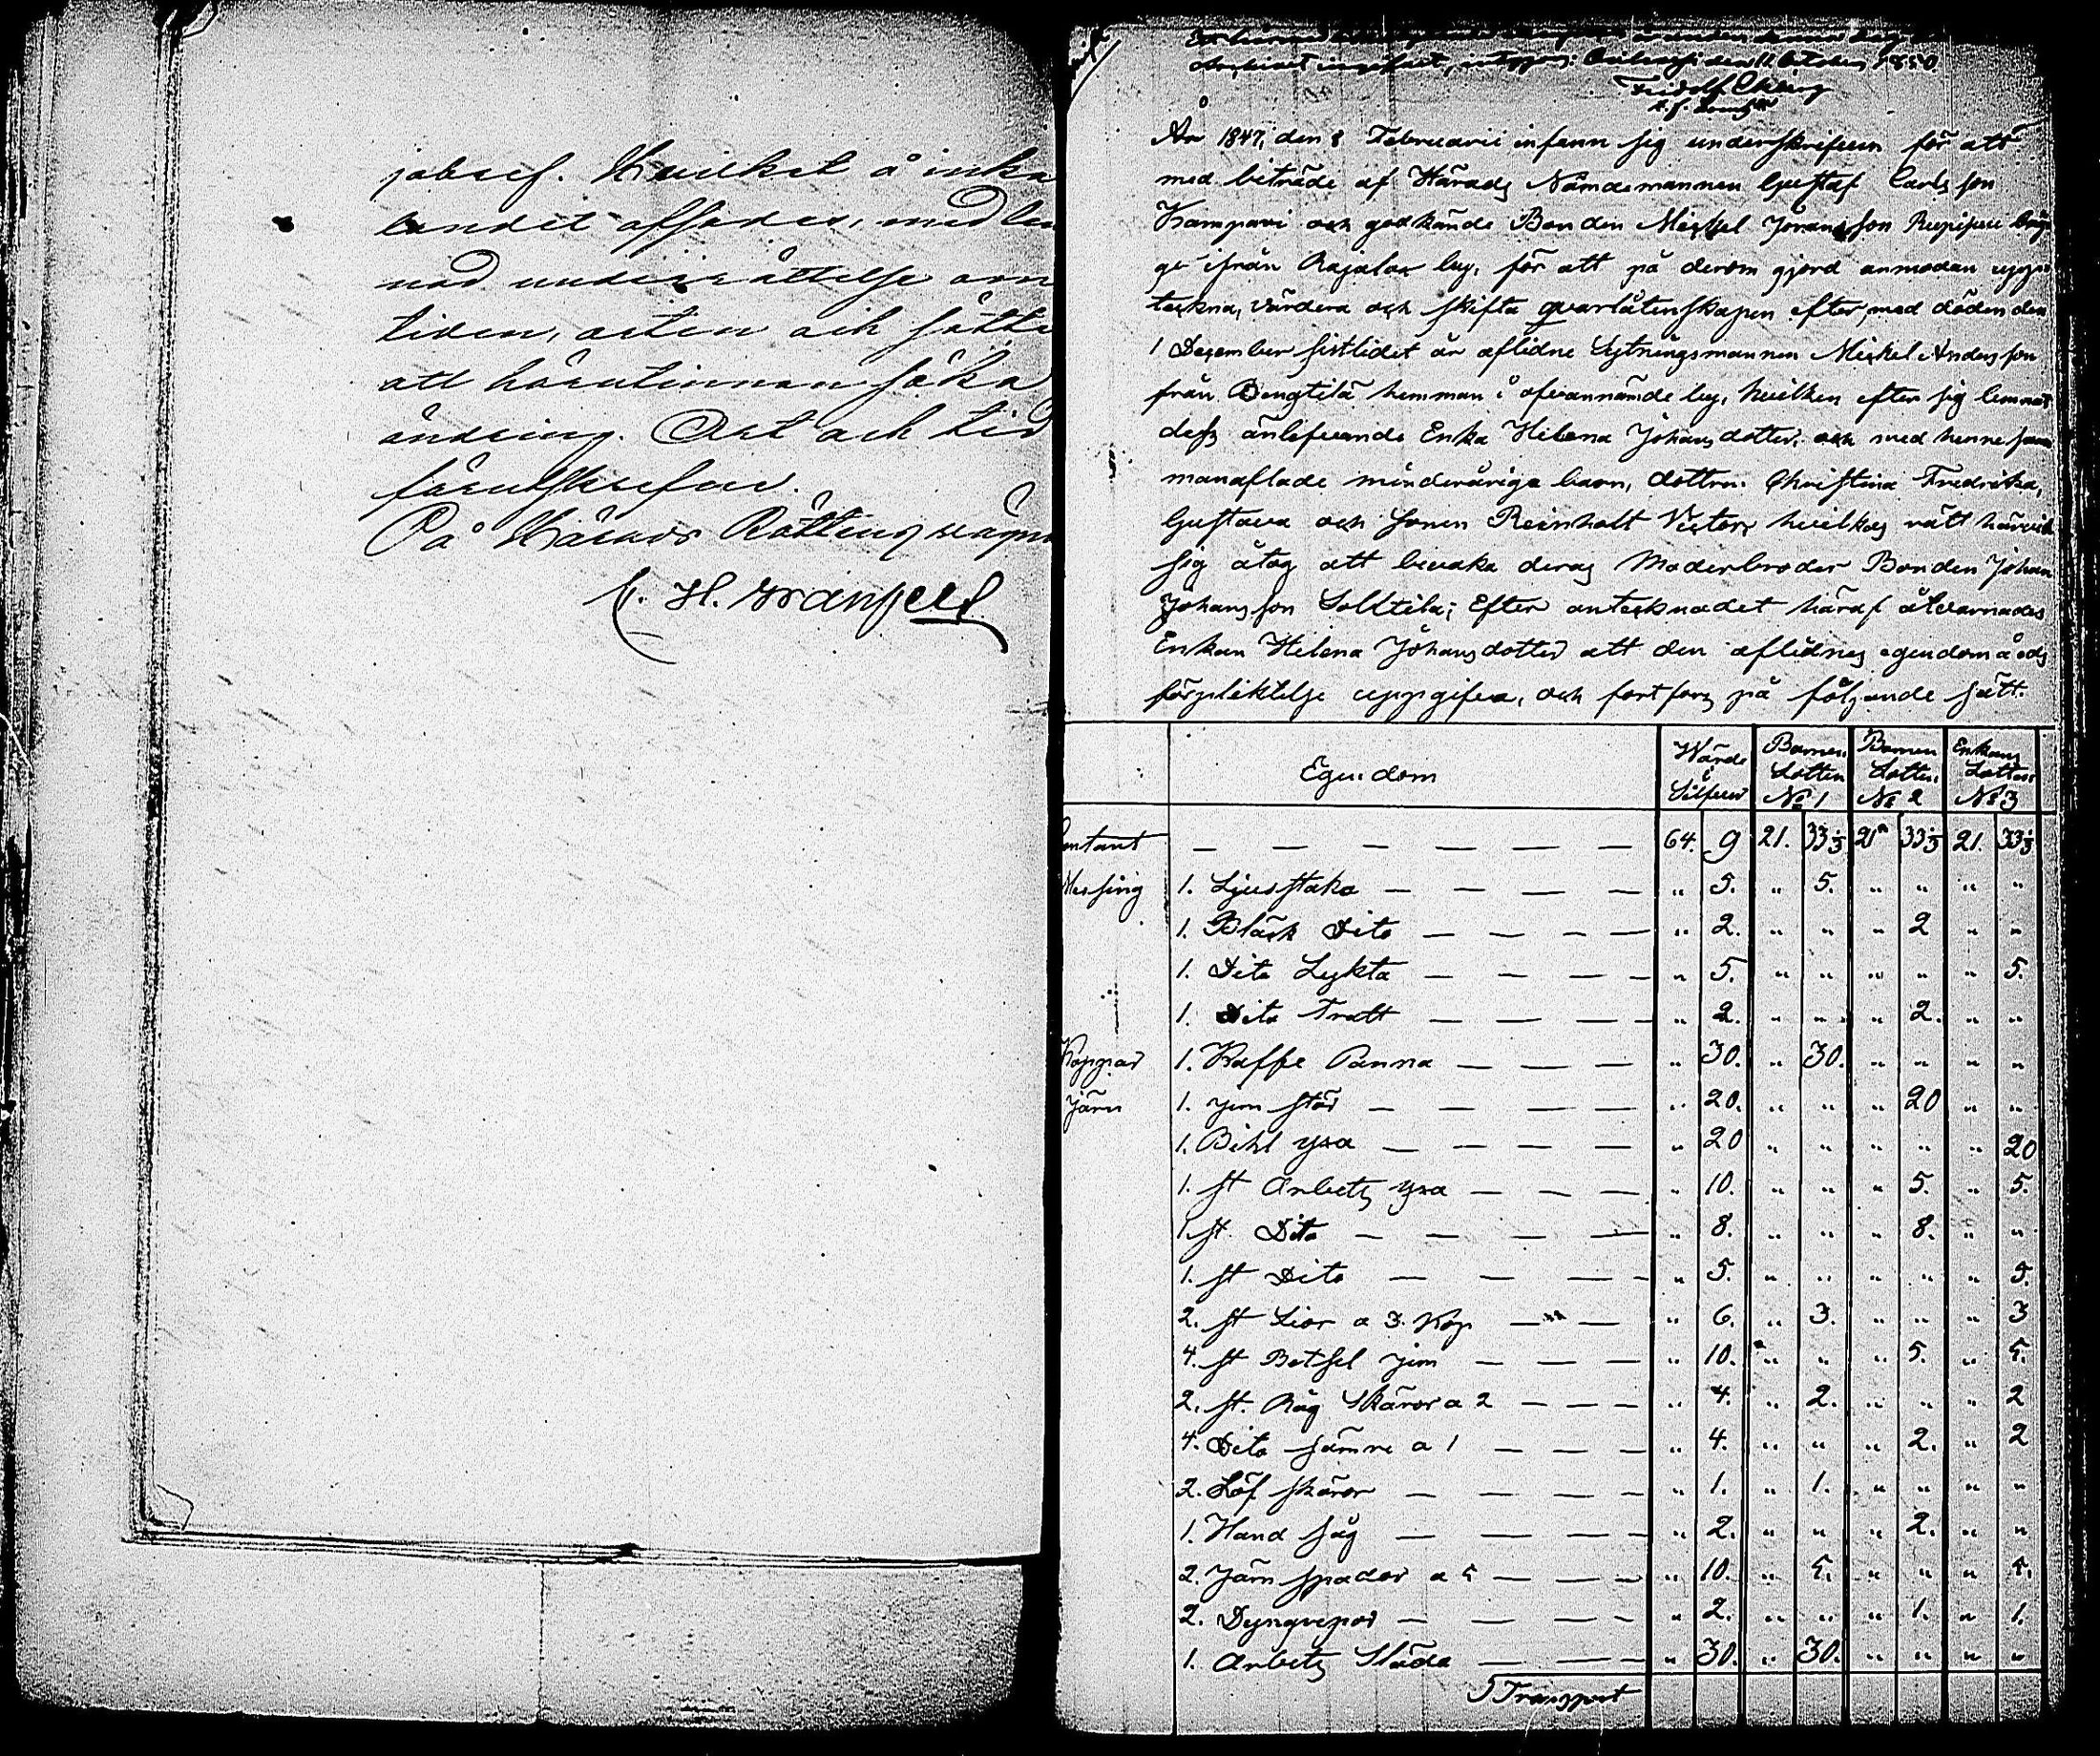 jabref. Hvilket å inka
landet affärdes, med lem
nad underrättelse om
tiden, orten och sättet
att härutinnan söka
ändring. Ort och tid
förutskrefne.
På Härads Rättens vägnar
C. H. Granfelt
den 11 October 1850.
År 1847, den 8 Februarii infann sig underskrifven för att
med biträde af Härads Nämdemannen Gustaf Carlsson
Kampari och godkände Bonden Mickel Jöransson beg
ge ifrån Rajalax by, för att på derom gjord anmodan uppe
teckna, värdera och skifta qvarlåtenskapen efter, med döden den
1 December sistlidet år aflidne Mickel Andersson
från Bengtilä hemman i ofvannämde by, hvilken efter sig lemnat
dess änlefvande Enka Helena Johansdotter, och med henne sam
manaflade minderåriga barn, dottren Christina Fredrika,
Gustava och Sonen Reinholt Victor, hvilkas rätt härvid
sig åtog att bevaka deras Moderbroder Bonden Johan
Johansson Solttila; Efter antecknadet häraf åtvarnades
Enkan Helena Johansdotter att den aflidnes egendom å eds
förpliktelse uppgifva, och fortfors på följande sätt.
Egendom Wärde å Silfver Barnen Lotten № 1 Barnen Lotten № 2 Enkans Lotten № 3
Contant — — — — — — 64. 9 21. 33⅓ 21 33⅓ 21. 33⅓
Messing 1. Ljusstaka — — — — " 5. " 5. " " " "
1. Bläck Dito — — — — " 2. " " " 2 " "
1. Dito Lykta — — — — " 5. " " " " " 5.
1. Dito Tratt — — — — " 2. " " " 2. " "
Koppar 1. Kaffe Panna — — — " 30. " 30. " " " "
Järn 1. Jern stör — — — — " 20. " " " 20 " "
1. Bihl yxa — — — — " 20 " " " " " 20
1. st Arbets yxa — — — " 10. " " " 5. " 5.
1 st. Dito — — — — " 8. " " " 8. " "
1. st Dito — — — — " 5. " " " " " 5.
2. st Liar a 3. Kop — — " 6. " 3. " " " 3
4. st Betsel jern — — — " 10. " " " 5. " 5.
2. st. Råg Skäror a 2 — — — " 4. " 2. " " " 2
4. Dito sämre a 1 — — — " 4. " " " 2. " 2
2. Löf skäror — — — — " 1. " 1. " " " "
1. Hand såg — — — — " 2. " " " 2. " "
2. Järn spador a 5 — — — " 10. " 5. " " " 5.
2. — — — — " 2. " " " 1. " 1.
1. Arbets Släda — — — " 30. " 30. " " " "
Transport